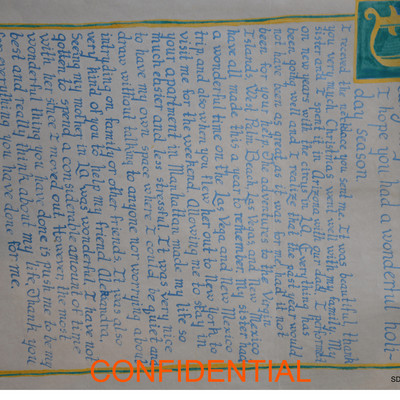 I hope you had a wonderful holi-
day season.
I received the necklace you sent me. It was beautiful, thank
you very much. Christmas went well with my family. My
sister and I spent it in Arizona with our dad. I performed
on new years with the circus in LA. Everything has
been going well and I realize that the past year would
not have been as great as it was for me had it not
been for your help. Our adventures to the Virgin
Islands, West Palm Beach, Las Vegas and New Mexico
have all made this a year to remember. My sister had
a wonderful time on the Las Vegas and New Mexico
trip and also when you flew her out to New York to
visit me for the weekend. Allowing me to stay in
your apartment in Manhattan made my life so
much easier and less stressful. It was very nice
to have my own space where I could be quiet and
draw without talking to anyone nor worrying about
intruding on family or other friends. It was also
very kind of you to help my friend Alexandra.
Seeing my mother in LA was wonderful. I have not
gotten to spend a considerable amount of time
with her since I moved out. However the most
wonderful thing you have done is push me to be my
best and really think about my life. Thank you
for everything you have done for me.
CONFIDENTIAL
SD